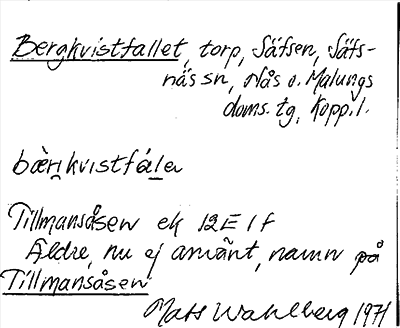 Bergkvistfallet, torp, Säfsen, Säfs-
näs sn, Nås o. Malungs
doms. tg, Kopp. l.
bæ̀rikvistfále
Tillmansåsen ek 12E 1f
Äldre, nu ej använt, namn på
Tillmansåsen
Mats Wahlberg 1971